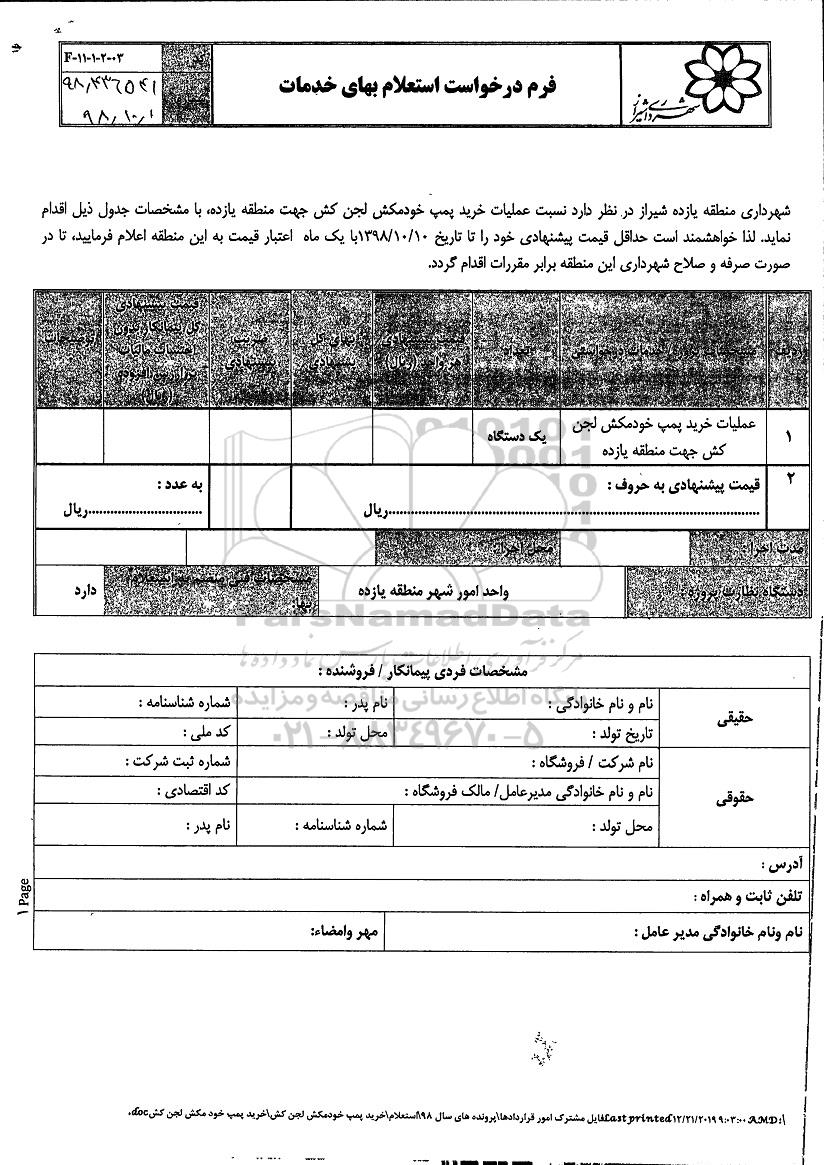 کد
F-۱۱-۱-۲-۰۳
۹۸,۴۳۶۵۴۱
۹۸,۱۰,۱
فرم درخواست استعلام بهای خدمات
شهرداری شیراز
شهرداری منطقه یازده شیراز در نظر دارد نسبت عملیات خرید پمپ خودمکش لجن کش جهت منطقه یازده، با مشخصات جدول ذیل اقدام
نماید. لذا خواهشمند است حداقل قیمت پیشنهادی خود را تا تاریخ ۱۳۹۸/۱۰/۱۰با یک ماه اعتبار قیمت به این منطقه اعلام فرمایید، تا در
صورت صرفه و صلاح شهرداری این منطقه برابر مقررات اقدام گردد.
ردیف
تعداد
قیمت پیشنهادی هر واحد (ریال)
بهای کل پیشنهادی
توضیحات
۱
عملیات خرید پمپ خودمکش لجن
کش جهت منطقه یازده
یک دستگاه
۲
قیمت پیشنهادی به حروف :
..........ریال
به عدد :
..........ریال
مدت اجرا :
محل اجرا :
دستگاه نظارت پروژه :
واحد امور شهر منطقه یازده
مشخصات فنی منضم به استعلام بها:
دارد
ParsNamadData
مرکز فرآوری اطلاعات پارس نماد داده ها
پایگاه اطلاع رسانی مناقصه و مزایده
۰۲۱-۸۸۳۴۹۶۷۰-۵
مشخصات فردی پیمانکار / فروشنده :
حقیقی
نام و نام خانوادگی :
نام پدر :
شماره شناسنامه :
تاریخ تولد :
محل تولد :
کد ملی :
حقوقی
نام شرکت / فروشگاه :
شماره ثبت شرکت :
نام و نام خانوادگی مدیرعامل/ مالک فروشگاه :
کد اقتصادی :
محل تولد :
شماره شناسنامه :
نام پدر :
آدرس :
تلفن ثابت و همراه :
نام ونام خانوادگی مدیر عامل :
مهر وامضاء:
۱ Page
I:\فایل مشترک امور قراردادها\پرونده های سال ۹۸\استعلام\خرید پمپ خودمکش لجن کش\خرید پمپ خود مکش لجن کش.doc Last printed ۱۲/۲۱/۲۰۱۹ ۹:۰۳:۰۰ AMD